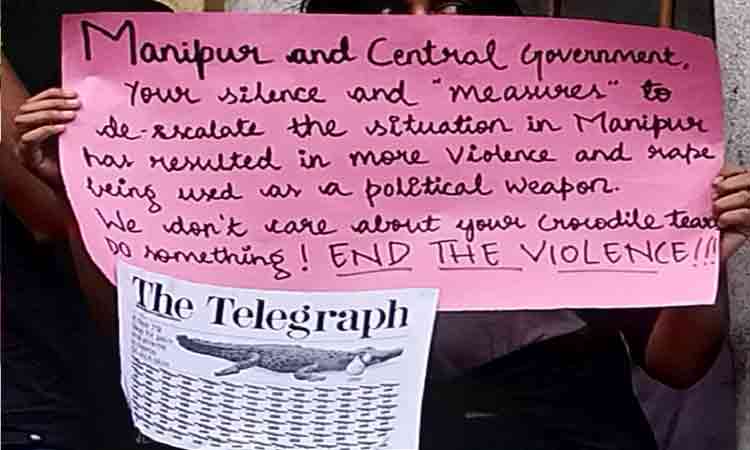 Manipur and Central Government,
Your silence and "measures" to
de-escalate the situation in Manipur
has resulted in more violence and rape
being used as a political weapon.
We don't care about your crocodile tears
Do something! END THE VIOLENCE!!!
The Telegraph